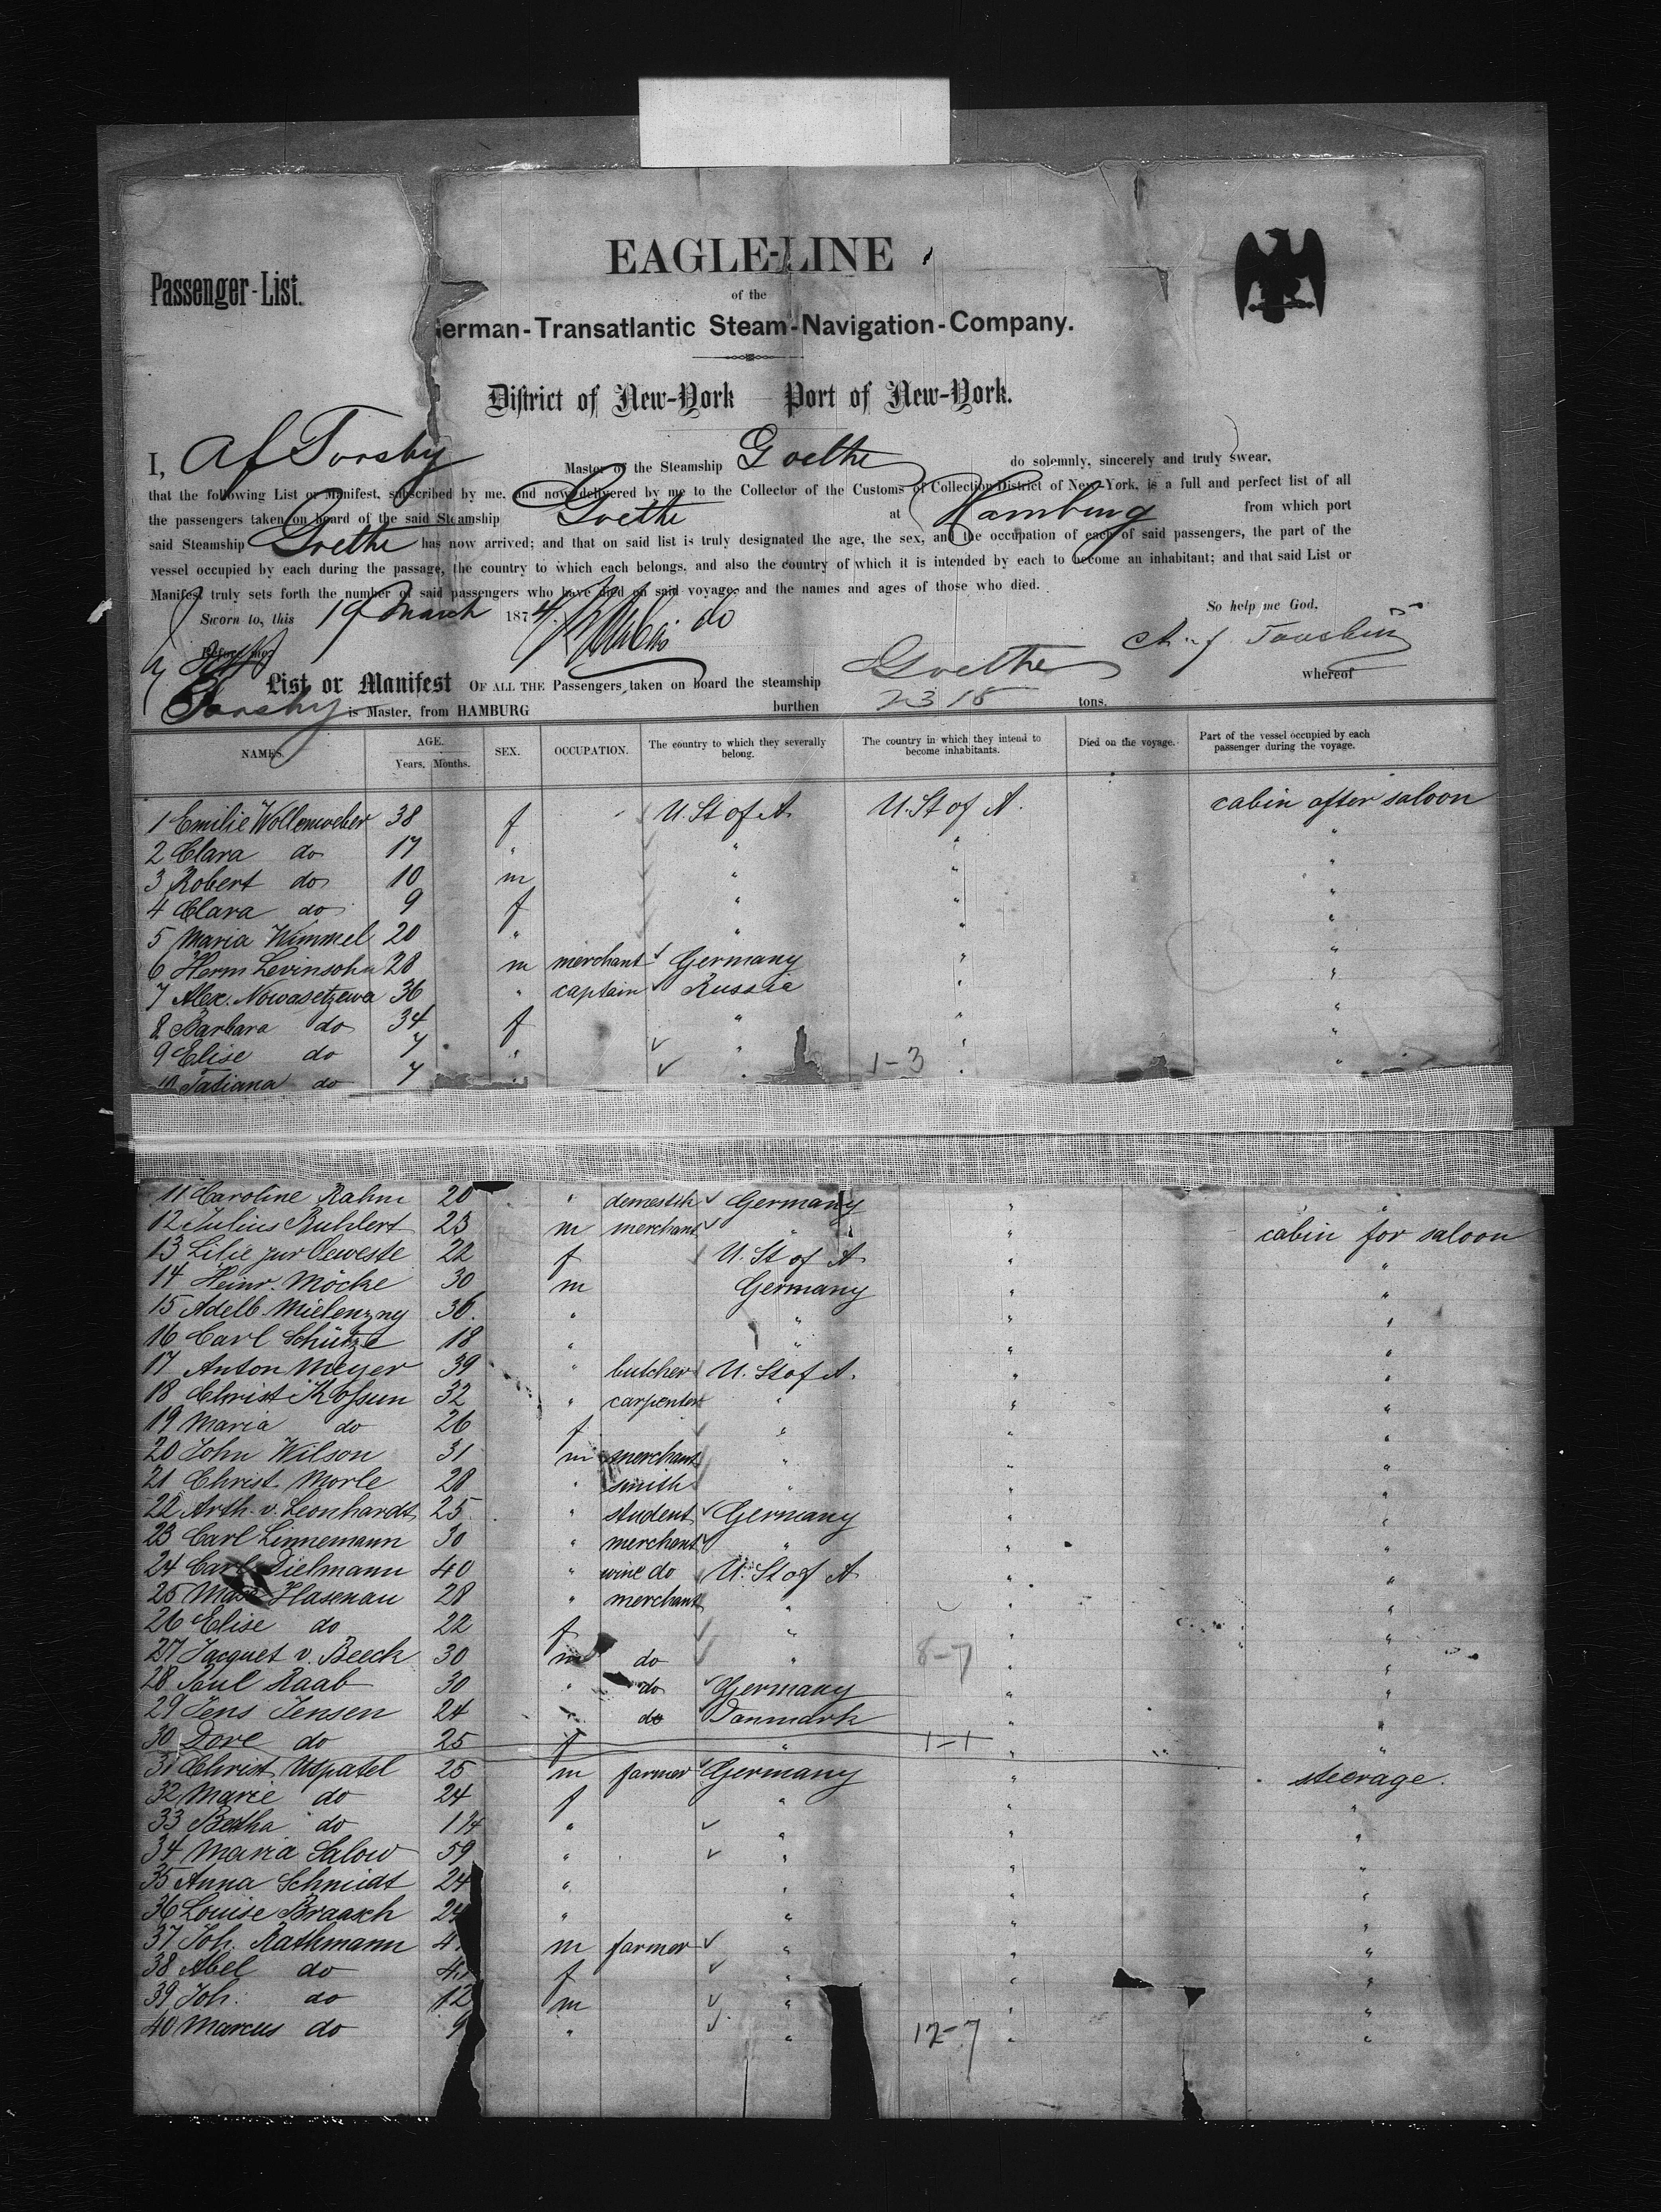 EAGLE-LINE
Passenger-List.
of the
German-Transatlantic Steam-Navigation-Company.
District of New-York Port of New-York.
I, A f Toosby Master of the Steamship Goethe do solemnly, sincerely and truly swear,
that the following List or Manifest, subscribed by me, and now delivered by me to the Collector of the Customs of Collection District of New-York, is a full and perfect list of all
the passengers taken on board of the said Steamship Goethe at Hamburg from which port
said Steamship Goethe has now arrived; and that on said list is truly designated the age, the sex, and the occupation of each of said passengers, the part of the
vessel occupied by each during the passage, the country to which each belongs, and also the country of which it is intended by each to become an inhabitant; and that said List or
Manifest truly sets forth the number of said passengers who have died on said voyage, and the names and ages of those who died.
Sworn to, this 19 March 1874 do So help me God,
Before me: A. f. Toosbuy
List or Manifest OF ALL THE Passengers taken on board the steamship Goethe whereof
Toosby is Master, from HAMBURG burthen 2315 tons.
NAMES. AGE. Years, Months. SEX. OCCUPATION. The country to which they severally belong. The country in which they intend to become inhabitants. Died on the voyage. Part of the vessel occupied by each passenger during the voyage.
1 Emilie Wollenweber 38 f U. St of A. U. St of A. cabin after saloon
2 Clara do 17 " " " "
3 Robert do 10 m " " "
4 Clara do 9 f " " "
5 Maria Wimmel 20 " " " "
6 Herm Levinsohn 28 m merchant Germany " "
7 Alex. Nowasetzewa 36 " captain Russia " "
8 Barbara do 34 f " " "
9 Elise do 7 " " " "
10 Tatiana do 7 " 1-3 " "
11 Caroline Rahm 20 " domestik Germany " "
12 Julius Ruhlert 23 m merchant " " cabin for saloon
13 Lilie zur Oeweste 22 f U. St of A " "
14 Heinr. Möcke 30 m Germany " "
15 Adelb. Mielenzny 36. " " " "
16 Carl Schütze 18 " " " "
17 Anton Meyer 39 " butcher U. St of A. " "
18 Christ Kossun 32 " carpenter " " "
19 Maria do 26 f " " "
20 John Wilson 31 m merchant " " "
21 Christ. Morle 28 " smith " " "
22 Arth. v. Leonhardt 25 " student Germany " "
23 Carl Linnemann 30 " merchant " " "
24 Carl Dielmann 40 " wine do U. St of A " "
25 Hasenau 28 " merchant " " "
26 Elise do 22 f " " "
27 Jacques v. Beeck 30 m do " 8-7 " "
28 Paul Raab 30 " do Germany " "
29 Jens Jensen 24 do Danmark " "
30 Dore do 25 f " 1-1 " "
31 Christ Uspatel 25 m farmer Germany " steerage.
32 Marie do 24 f " " "
33 Bertha do 1 1/4 " " " "
34 Maria Salow 59 " " " "
35 Anna Schmidt 24 " " " "
36 Louise Braasch 24 " " " "
37 Joh. Rathmann 4 m farmer " " "
38 Abel do 4 f " " "
39 Joh. do 12 m " " "
40 Marcus do 9 " " 12-7 " "